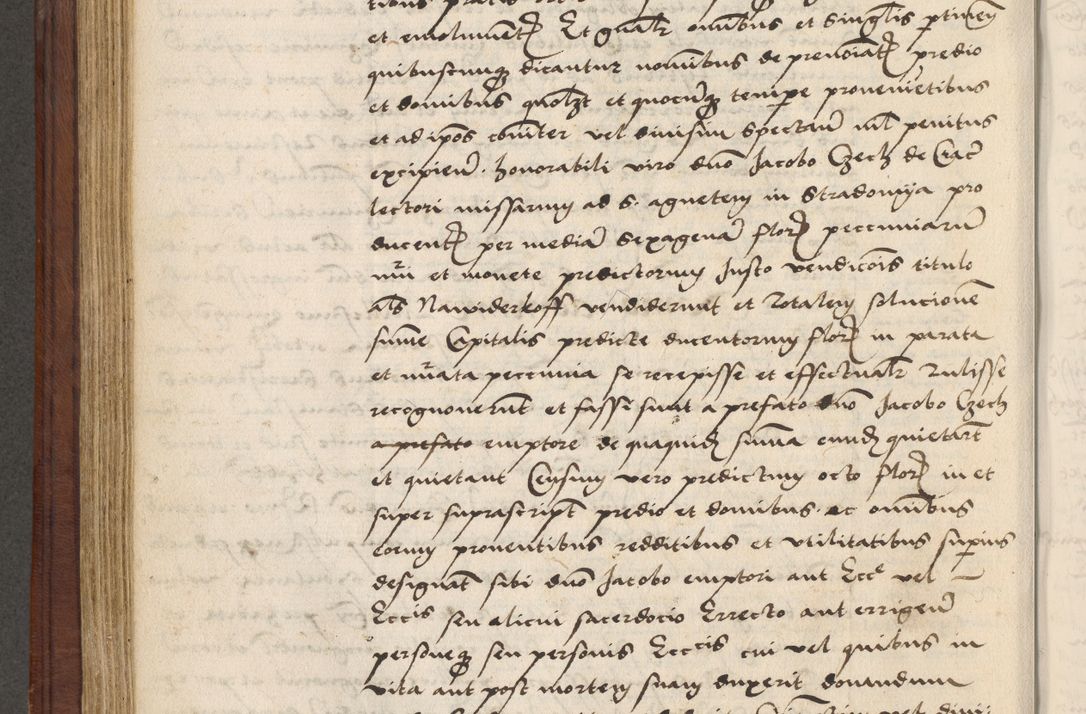 et emolument Et gnalr omnibus et singlis ptinen
quibuscunq dicantur nominibus de prenoiat predio
et domibus qmolzt et quocunq tempe provenietibus
et ad ipos coniter vel divisim spectan nil penitus
excipien. honorabili viro dno Jacobo Czech de Crac
lectori missarum ad S. agnetem in Stradomija pro
ducent per media sexagena flor pecuniaru
nui et monete predictorum Justo vendicois titulo
als Nawiderkoff vendiderunt et totalem solucione
sume Capitalis predicte ducentorum flor in parata
et nuata peccunia se recepisse et effectualr tulisse
recognoverut et fassi sunt a prefato dno Jacobo Czech
a prefato emptore de quaquid summa eund quietart
et quietant Censum vero predictum octo flor in et
super suprascript predio et domibus ac omnibus
eorum proventibus redditibus et utilitatibus superius
designat sibi dno Jacobo emptori aut Ecce vel
Eccis seu alicui sacerdocio Errecto aut errigen
personeq seu personis Eccis cui vel quibus in
vita aut post mortem suam duxerit donandum